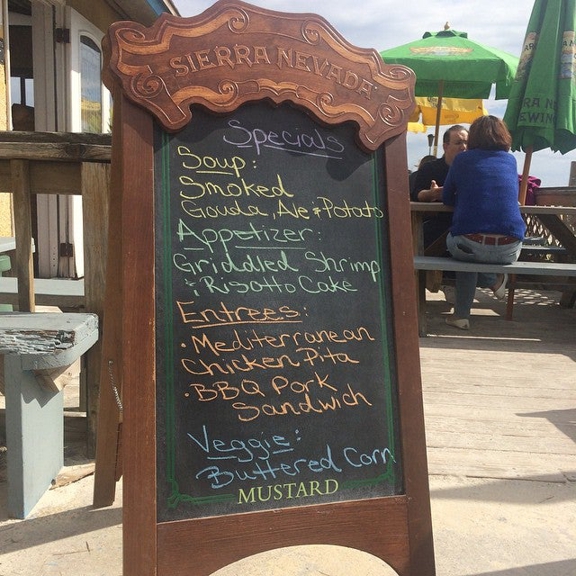 SIERRA NEVADA
Specials
Soup:
Smoked
Gouda, Ale + Potato
Appetizer:
Griddled Shrimp
+ Risotto Cake
Entrees:
• Mediterranean
Chicken Pita
• BBQ Pork
Sandwich
Veggie:
Buttered Corn
MUSTARD